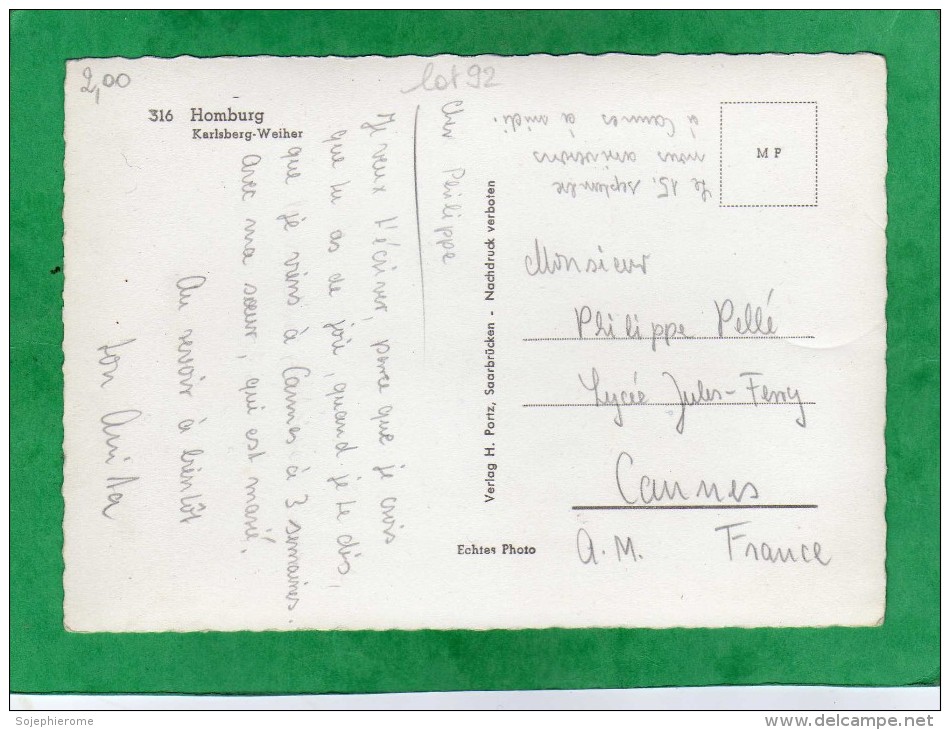 2,00
lot 92
316 Homburg
Karlsberg-Weiher
Cher Philippe
Je veux t'écriver, parce que je crois
que tu as de joie, quand je te dis,
que je viens à Cannes à 3 semaines.
avec ma sœur, qui est marié.
Au revoir à bientôt
ton Anita
Le 15. septembre
nous arriverons
à Cannes à midi.
M P
Verlag H. Portz, Saarbrücken - Nachdruck verboten
Echtes Photo
Monsieur
Philippe Pellé
Lycée Jules-Ferry
Cannes
A.M. France
Sojephierome
www.delcampe.net